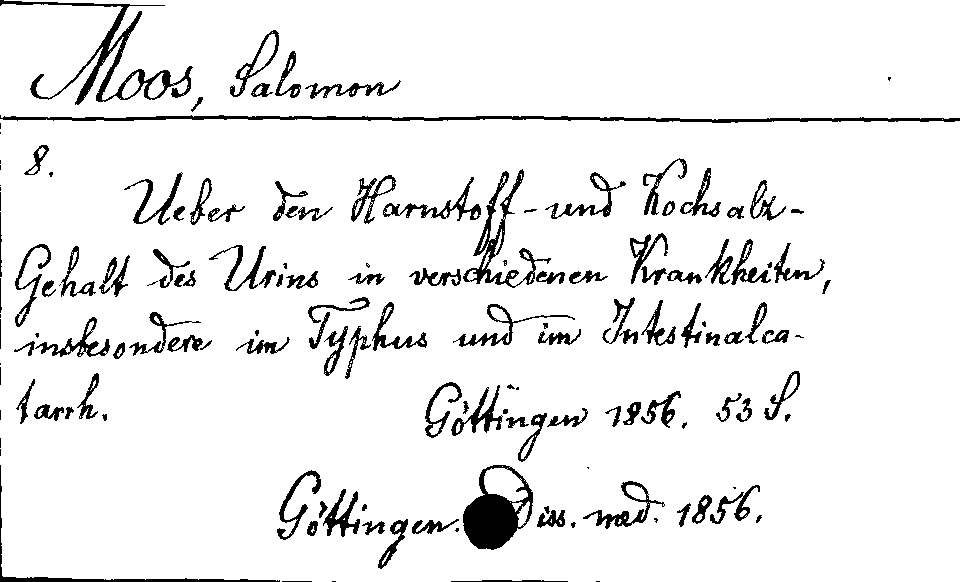 Moos, Salomon
8.
Ueber den Harnstoff- und Kochsalz-
Gehalt des Urins in verschiedenen Krankheiten,
insbesondere im Typhus und im Intestinalca-
tarrh.
Göttingen 1856. 53 S.
Göttingen. Diss. med. 1856.